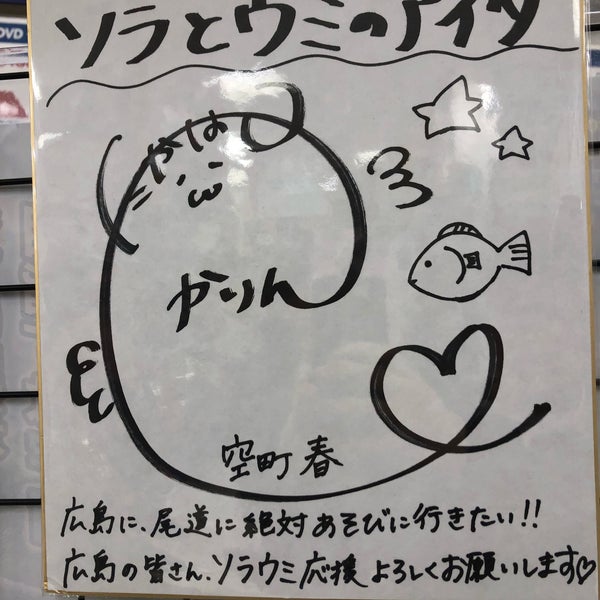 DVD
ソラとウミのアイダ
はやに
かりん
空町 春
広島に、尾道に絶対あそびに行きたい!!
広島の皆さん、ソラウミ応援よろしくお願いします♡